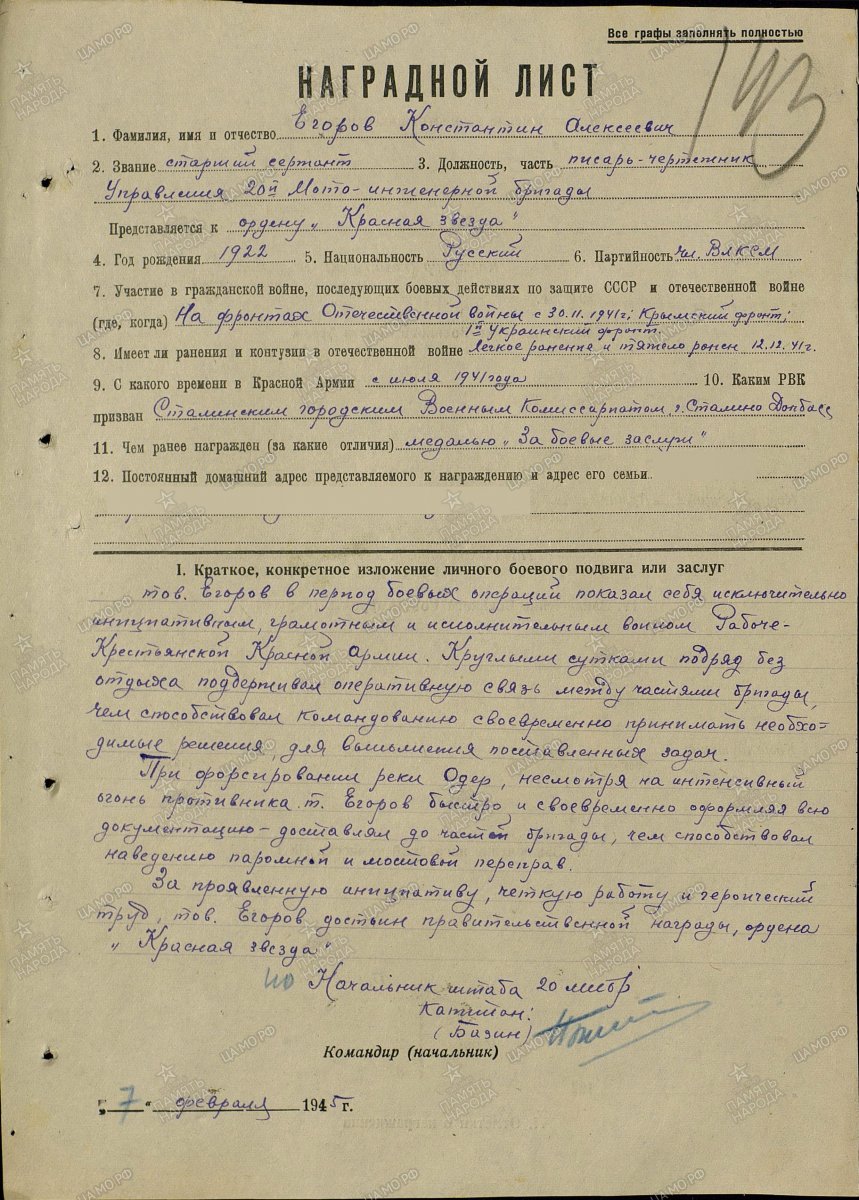 Все графы заполнять полностью
143
НАГРАДНОЙ ЛИСТ
1. Фамилия, имя и отчество Егоров Константин Алексеевич
2. Звание старший сержант 3. Должность, часть писарь-чертежник
Управления 20й Мото-инженерной бригады
Представляется к ордену „Красная звезда"
4. Год рождения 1922 5. Национальность Русский 6. Партийность чл. ВЛКСМ
7. Участие в гражданской войне, последующих боевых действиях по защите СССР и отечественной войне
(где, когда) На фронтах Отечественной войны с 30.11.1941г; Крымский фронт;
1й Украинский фронт.
8. Имеет ли ранения и контузии в отечественной войне легкое ранение и тяжело ранен 12.12.41г.
9. С какого времени в Красной Армии с июля 1941 года 10. Каким РВК
призван Сталинским городским Военным Комиссариатом, г. Сталино Донбасс
11. Чем ранее награжден (за какие отличия) медалью „За боевые заслуги"
12. Постоянный домашний адрес представляемого к награждению и адрес его семьи
I. Краткое, конкретное изложение личного боевого подвига или заслуг
тов. Егоров в период боевых операций показал себя исключительно
инициативным, грамотным и исполнительным воином Рабоче-
Крестьянской Красной Армии. Круглыми сутками подряд без
отдыха поддерживал оперативную связь между частями бригады,
чем способствовал командованию своевременно принимать необхо-
димые решения, для выполнения поставленных задач.
При форсировании реки Одер, несмотря на интенсивный
огонь противника т. Егоров быстро и своевременно оформляя всю
документацию – доставлял до частей бригады, чем способствовал
наведению паромной и мостовой переправ.
За проявленную инициативу, четкую работу и героический
труд, тов. Егоров достоин правительственной награды, ордена
„Красная звезда"
Начальник штаба 20 мибр
Капитан:
(Базин)
Командир (начальник)
„7" февраля 1945 г.
ПАМЯТЬ НАРОДА
ЦАМО.РФ